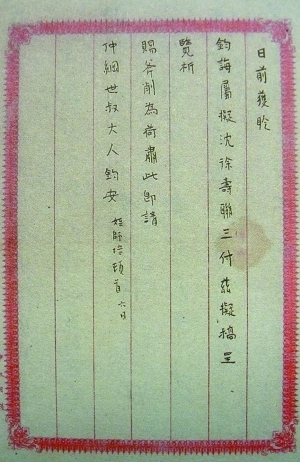 日前獲聆
鈞誨屬擬沈徐壽聯三付茲擬稿呈
覽祈
賜斧削為荷肅此即請
仲綱世叔大人鈞安 姪師 頓首 六日